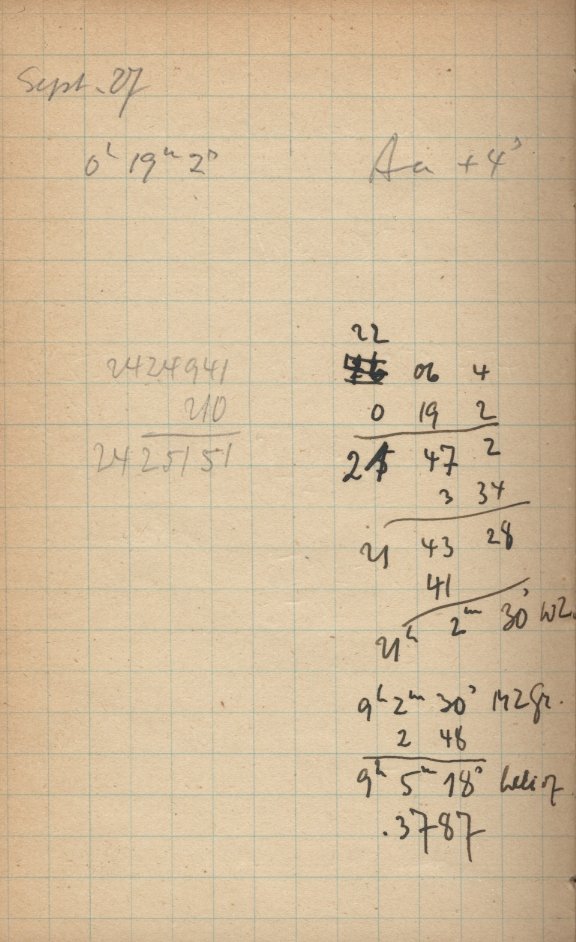 Sept. 27
0ʰ 19ᵐ 2ˢ
+4ˢ
2424941
210
2425151
22
06 4
0 19 2
21 47 2
3 34
21 43 28
41
21ʰ 2ᵐ 30ˢ WZ.
9ʰ 2ᵐ 30ˢ MZGr.
2 48
9ʰ 5ᵐ 18ˢ helioz
.3787